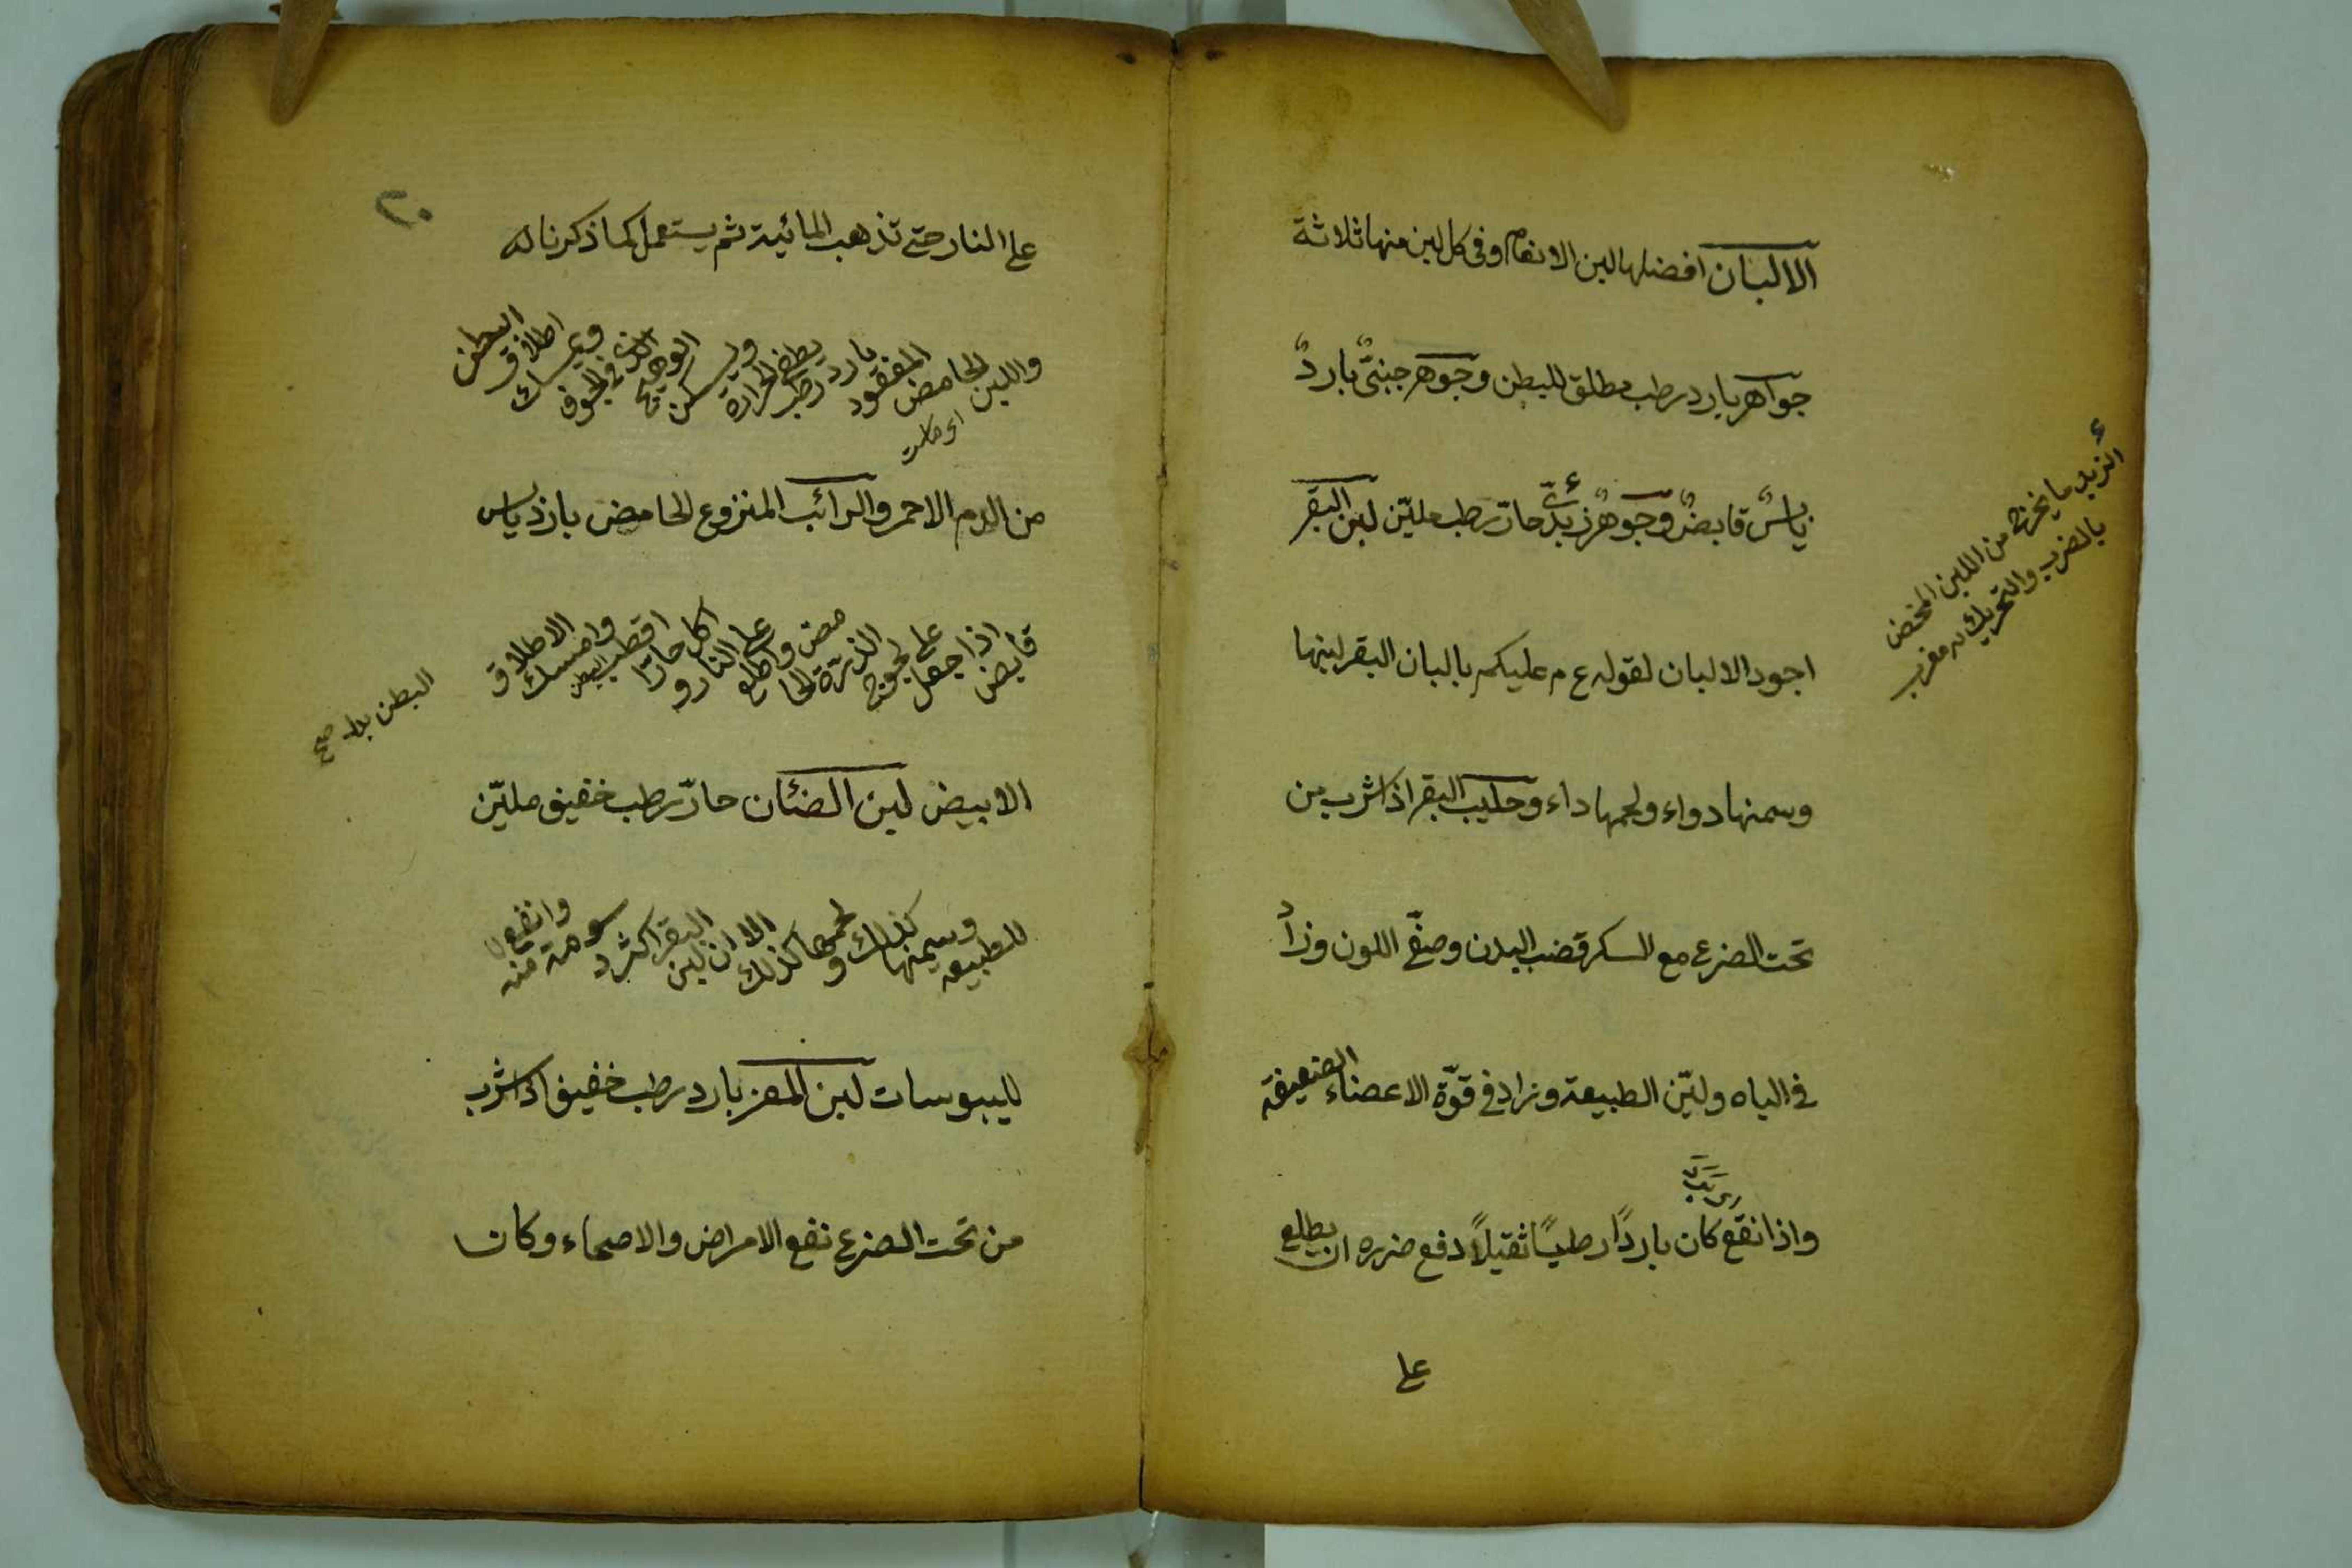 الالبان افضلها لبن الانعام وفى كل لبن منها ثلاثة
جواهر بارد رطب مطلق للبطن وجوهر جبنىّ باردٌ
يابسٌ قابضٌ وجوهر زبدىّ حارّ رطب مليّن لبن البقر
اجود الالبان لقوله ع م عليكم بالبان البقر لبنها
وسمنها دواء ولحمها داء وحليب البقر اذا شرب من
تحت الضرع مع السكر قضب البدن وصفّى اللون وزاد
فى الباه وليّن الطبيعة وزاد فى قوّة الاعضاء الضعيفة
واذا نقع كان باردًا رطبًا ثقيلاً دفع ضرره ان يطلع
على
الزبد ما يخرج من اللبن المخض
بالضرب والتحريك مغرب
٢٠
على النار حتى تذهب المائية ثم يستعمل كما ذكرنا له
واللبن الحامض المعقود بارد رطب يطفى الحرارة ويسكن الوهيج فى الجوف ويمسك اطلاق البطن
من الدم الاحمر والرائب المنزوع الحامض بارد يابس
قابض اذا جعل على الحامض واطلع على النار و اكل حارّا اقطب البطن وامسك الاطلاق
البطن بدل صح
الابيض لبن الضئان حارّ رطب خفيف مليّن
للطبيعه وسمنها كذلك ولحمها كذلك الا ان لبن البقر اكثر دسومة منه وانفع
لليبوسات لبن المعز بارد رطب خفيف اذا شرب
من تحت الضرع نفع الامراض والاصحاء وكان